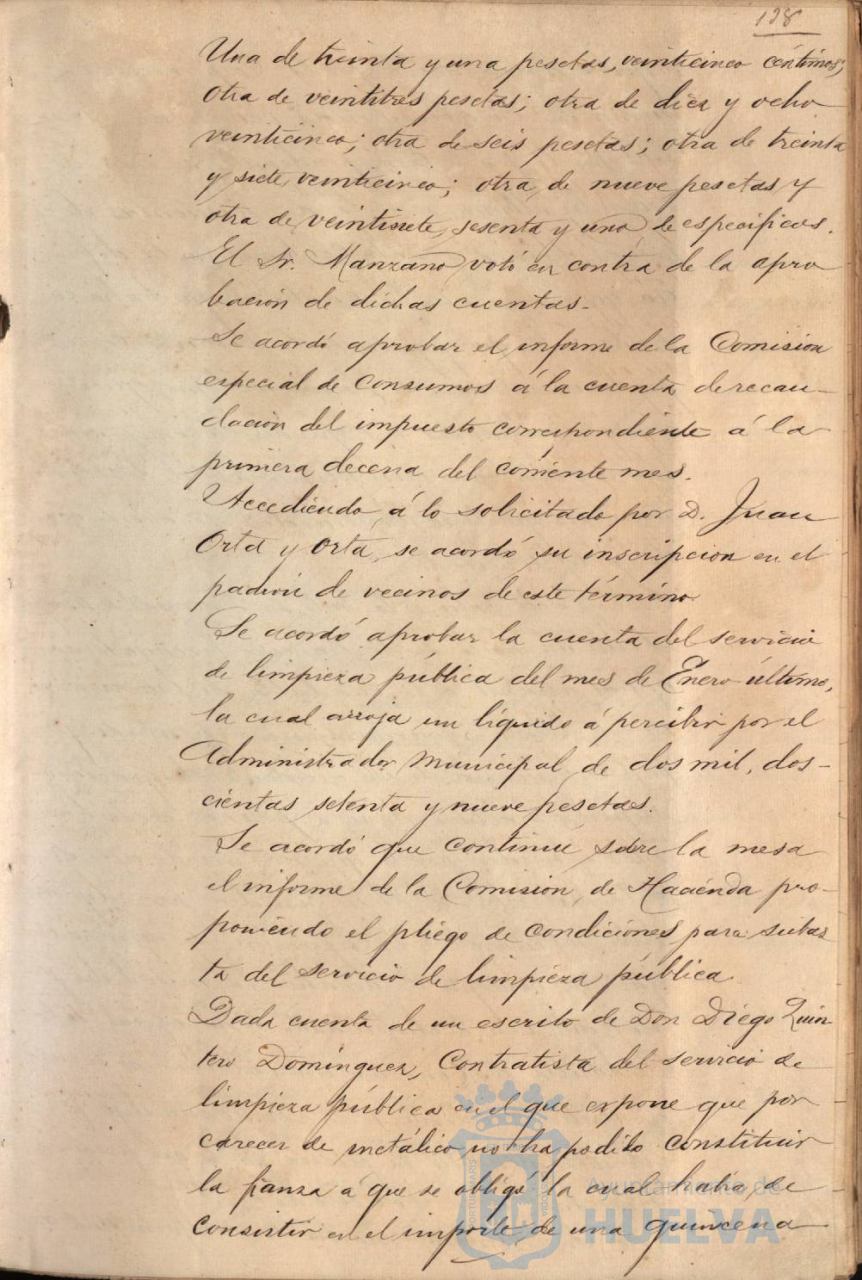 128
Una de treinta y una pesetas, veinticinco céntimos;
otra de veintitres pesetas; otra de diez y ocho
veinticinco; otra de seis pesetas; otra de treinta
y siete, veinticinco; otra de nueve pesetas y
otra de veintisiete, sesenta y uno de específicos.
El Sr. Manzano votó en contra de la apro
bación de dichas cuentas.
Se acordó aprobar el informe de la Comisión
especial de Consumos á la cuenta de recau-
dación del impuesto correspondiente á la
primera decena del corriente mes.
Accediendo á lo solicitado por D. Juan
Orta y Orta, se acordó su inscripción en el
padrón de vecinos de este término.
Se acordó aprobar la cuenta del servicio
de limpieza pública del mes de Enero último,
la cual arroja un líquido á percibir por el
Administrador Municipal de dos mil, dos-
cientas setenta y nueve pesetas.
Se acordó que continúe sobre la mesa
el informe de la Comisión de Hacienda pro-
poniendo el pliego de condiciones para subas
ta del servicio de limpieza pública.
Dada cuenta de un escrito de Don Diego Quin
tero Domínguez, Contratista del servicio de
limpieza pública en el que expone que por
carecer de metálico no ha podido constituir
la fianza á que se obligó la cual había de
consistir en el importe de una quincena
Ayuntamiento de
HUELVA